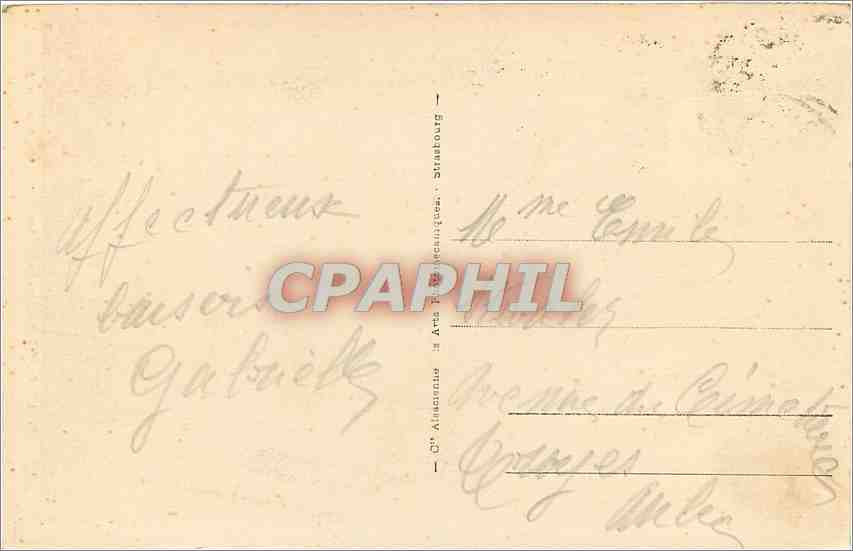 affectueux
baisers
Gabrielle
Cie Alsacienne des Arts Photomécaniques. - Strasbourg
CPAPHIL
Mme Emile
Avenue du Cimetière
Troyes
Aube